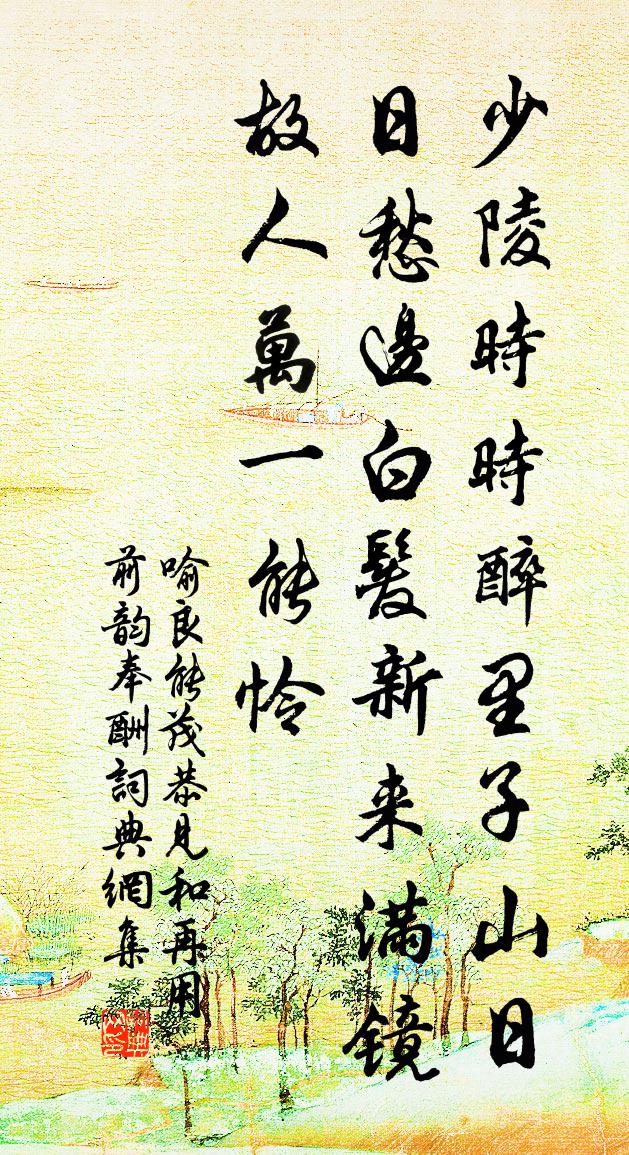 少陵時時醉里子山日
日愁邊白髮新来滿鏡
故人萬一能怜
喻良能茂恭見和再用
前韵奉酬詞典網集